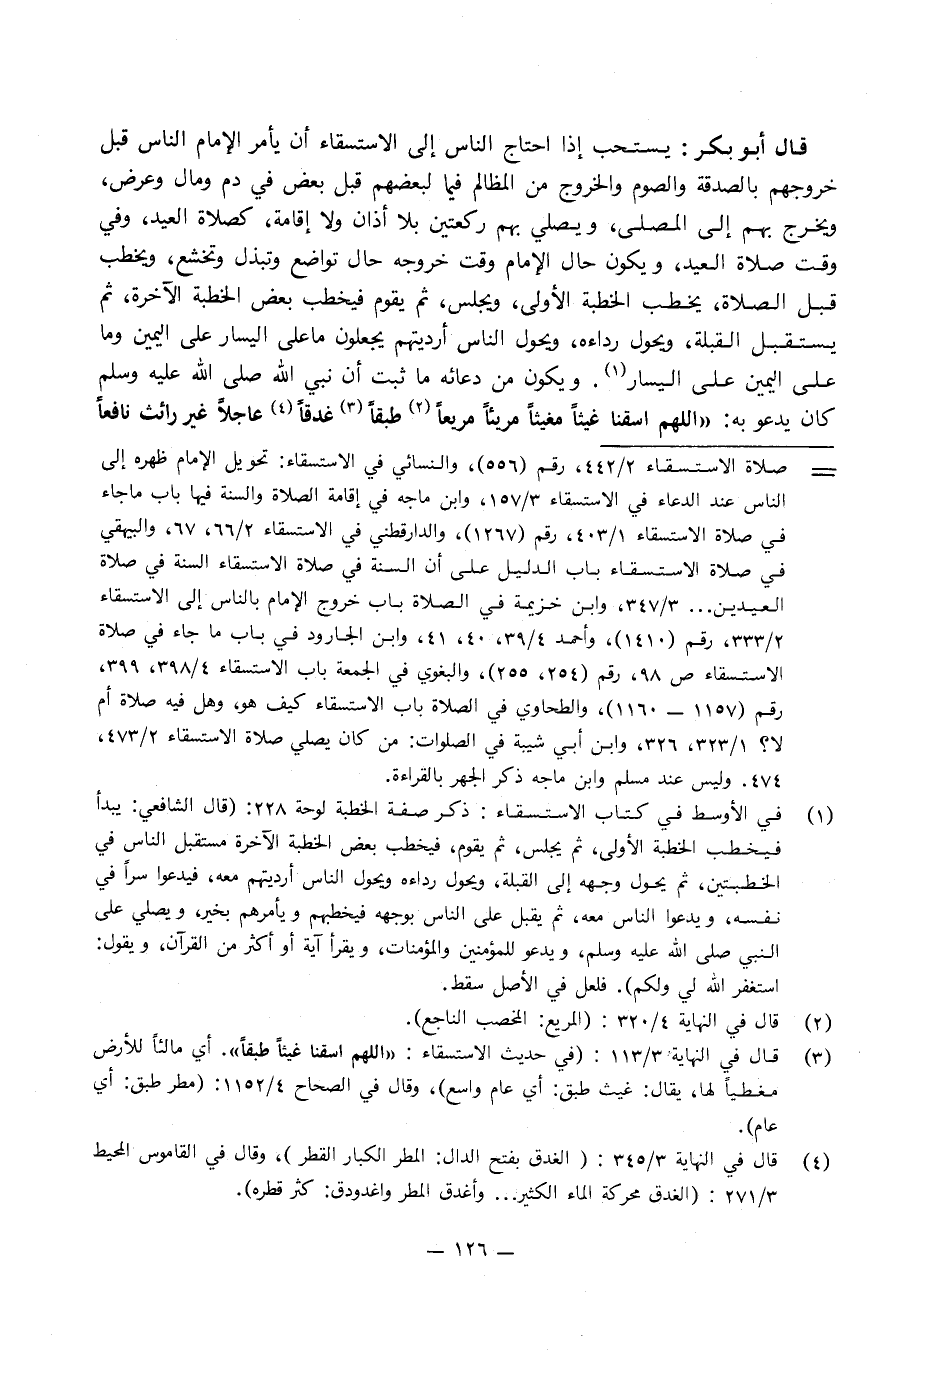 قال أبو بكر : يستحب إذا احتاج الناس إلى الاستسقاء أن يأمر الإمام الناس قبل
خروجهم بالصدقة والصوم والخروج من المظالم فيما لبعضهم قبل بعض في دم ومال وعرض،
ويخرج بهم إلى المصلى، ويصلي بهم ركعتين بلا أذان ولا إقامة، كصلاة العيد، وفي
وقت صلاة العيد، ويكون حال الإمام وقت خروجه حال تواضع وتبذل وتخشع، ويخطب
قبل الصلاة، يخطب الخطبة الأولى، ويجلس، ثم يقوم فيخطب بعض الخطبة الآخرة، ثم
يستقبل القبلة، ويحول رداءه، ويحول الناس أرديتهم يجعلون ماعلى اليسار على اليمين وما
على اليمين على اليسار(١). ويكون من دعائه ما ثبت أن نبي الله صلى الله عليه وسلم
كان يدعو به: «اللهم اسقنا غيثاً مغيثاً مريئاً مريعاً(٢) طبقاً(٣) غدقاً(٤) عاجلاً غير رائث نافعاً
= صلاة الاستسقاء ٤٤٢/٢، رقم (٥٥٦)، والنسائي في الاستسقاء: تحويل الإمام ظهره إلى
الناس عند الدعاء في الاستسقاء ١٥٧/٣، وابن ماجه في إقامة الصلاة والسنة فيها باب ماجاء
في صلاة الاستسقاء ٤٠٣/١، رقم (١٢٦٧)، والدارقطني في الاستسقاء ٦٦/٢، ٦٧، والبيهقي
في صلاة الاستسقاء باب الدليل على أن السنة في صلاة الاستسقاء السنة في صلاة
العيدين... ٣٤٧/٣، وابن خزيمة في الصلاة باب خروج الإمام بالناس إلى الاستسقاء
٣٣٣/٢، رقم (١٤١٠)، وأحمد ٣٩/٤، ٤٠، ٤١، وابن الجارود في باب ما جاء في صلاة
الاستسقاء ص ٩٨، رقم (٢٥٤، ٢٥٥)، والبغوي في الجمعة باب الاستسقاء ٣٩٨/٤، ٣٩٩،
رقم (١١٥٧ – ١١٦٠)، والطحاوي في الصلاة باب الاستسقاء كيف هو، وهل فيه صلاة أم
لا؟ ٣٢٣/١، ٣٢٦، وابن أبي شيبة في الصلوات: من كان يصلي صلاة الاستسقاء ٤٧٣/٢،
٤٧٤. وليس عند مسلم وابن ماجه ذكر الجهر بالقراءة.
(١) في الأوسط في كتاب الاستسقاء : ذكر صفة الخطبة لوحة ٢٢٨: (قال الشافعي: يبدأ
فيخطب الخطبة الأولى، ثم يجلس، ثم يقوم، فيخطب بعض الخطبة الآخرة مستقبل الناس في
الخطبتين، ثم يحول وجهه إلى القبلة، ويحول رداءه ويحول الناس أرديتهم معه، فيدعوا سراً في
نفسه، ويدعوا الناس معه، ثم يقبل على الناس بوجهه فيخطبهم ويأمرهم بخير، ويصلي على
النبي صلى الله عليه وسلم، ويدعو للمؤمنين والمؤمنات، ويقرأ آية أو أكثر من القرآن، ويقول:
استغفر الله لي ولكم). فلعل في الأصل سقط.
(٢) قال في النهاية ٣٢٠/٤ : (المريع: المخصب الناجع).
(٣) قال في النهاية ١١٣/٣ : (في حديث الاستسقاء : «اللهم اسقنا غيثاً طبقاً». أي مالئاً للأرض
مغطياً لها، يقال: غيث طبق: أي عام واسع)، وقال في الصحاح ١١٥٢/٤: (مطر طبق: أي
عام).
(٤) قال في النهاية ٣٤٥/٣ : ( الغدق بفتح الدال: المطر الكبار القطر )، وقال في القاموس المحيط
٢٧١/٣ : (الغدق محركة الماء الكثير... وأغدق المطر واغدودق: كثر قطره).
– ١٢٦ –